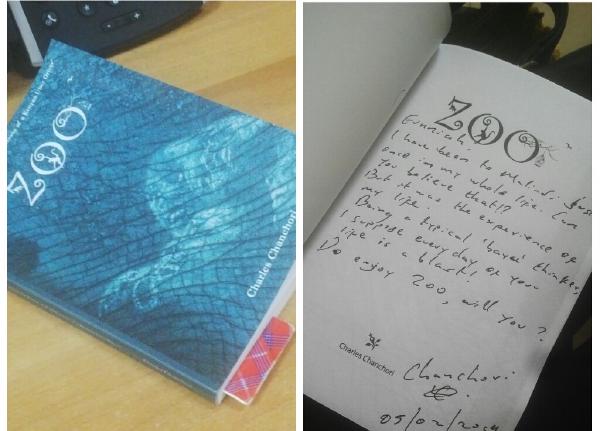 ZOO
Charles Chanchori
ZOO
I have been to Malindi just
once in my whole life. Can
you believe that!?
But it was the experience of
my life.
Being a typical 'bara' thinker,
I suppose everyday of your
life is a blast!
Do enjoy Zoo, will you?
Charles Chanchori
Chanchori
05/02/2014